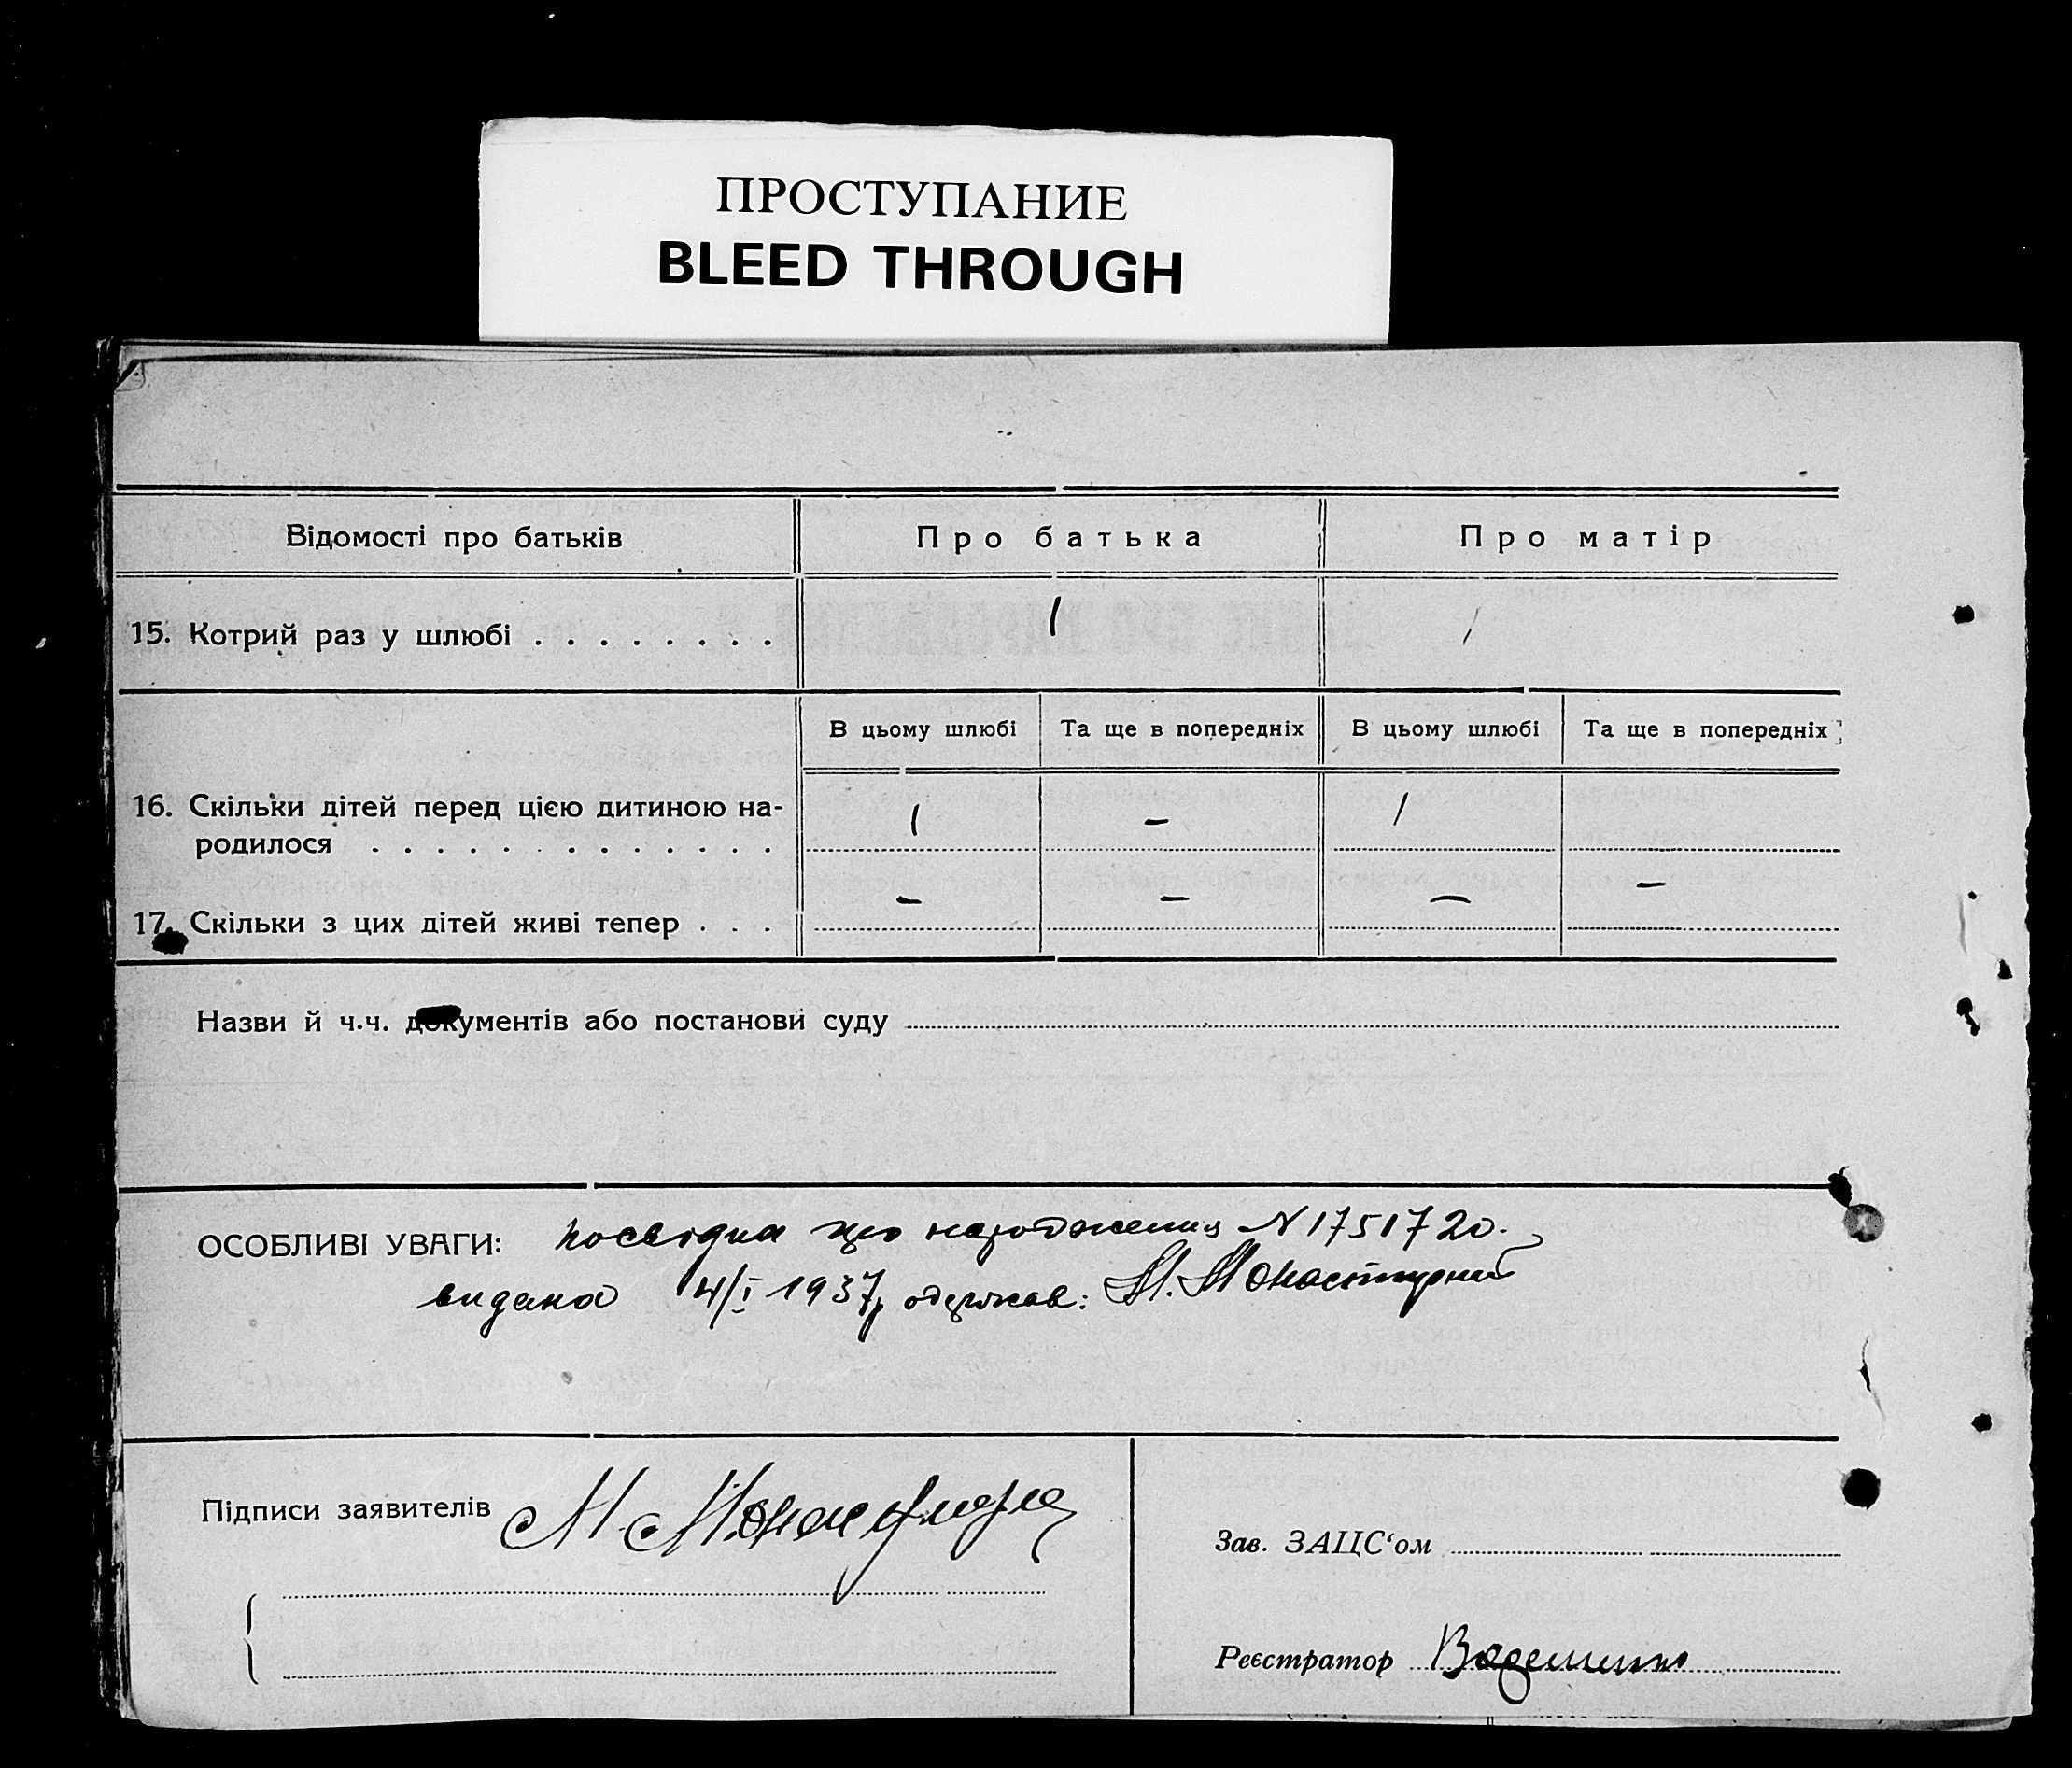 ПРОСТУПАНИЕ
BLEED THROUGH
Відомості про батьків Про батька Про матір
15. Котрий раз у шлюбі . . . . . . . . 1 1
В цьому шлюбі Та ще в попередніх В цьому шлюбі Та ще в попередніх
16. Скільки дітей перед цією дитиною на-
родилося . . . . . . . . . . . . . 1 – 1
17. Скільки з цих дітей живі тепер . . . – – – –
Назви й ч.ч. документів або постанови суду
ОСОБЛИВІ УВАГИ: посвідка про народження N 1751720.
видана 14/I 1937р одержав: М. Монастирний
Підписи заявителів М. 
Зав. ЗАЦС‘ом
Реєстратор